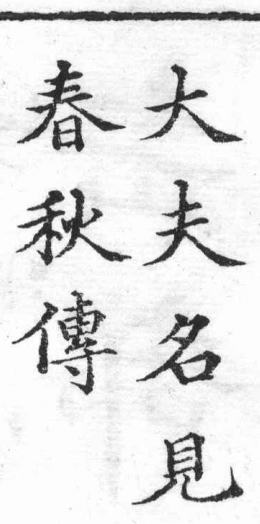 大夫名見
春秋傳